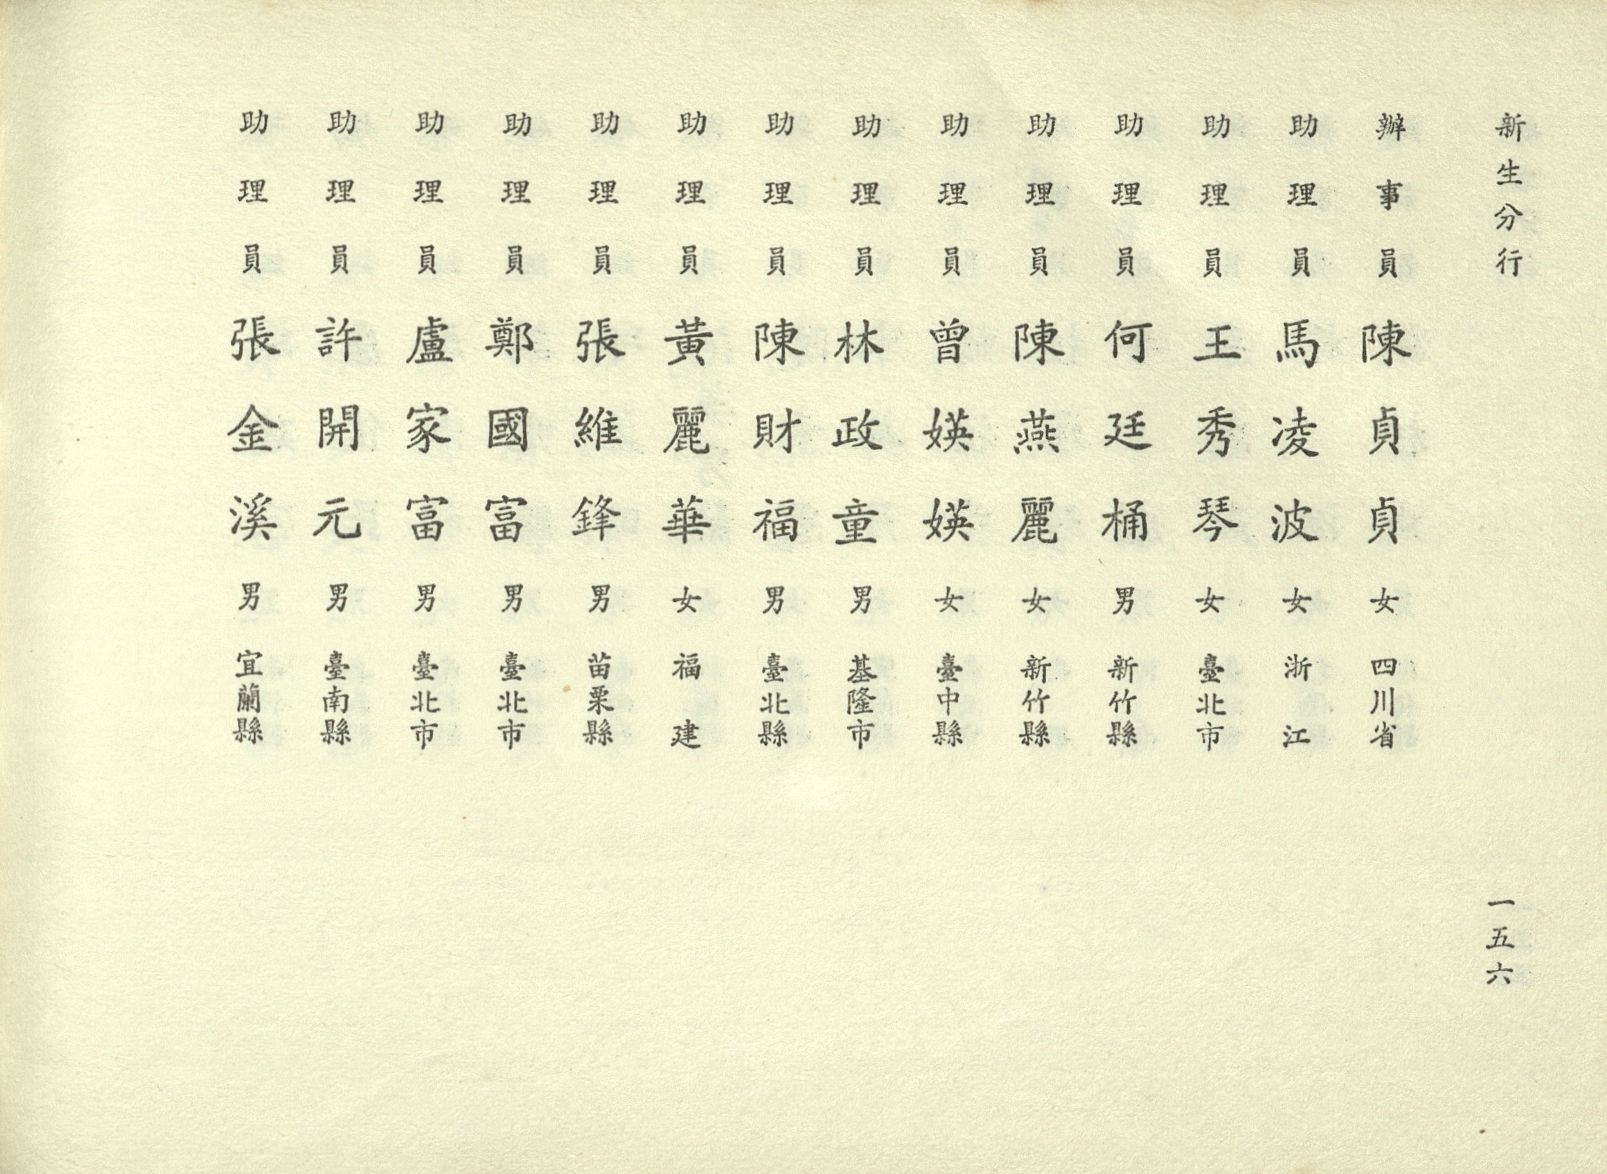 新生分行
辦事員 陳貞貞 女 四川省
助理員 馬凌波 女 浙江
助理員 王秀琴 女 臺北市
助理員 何廷桶 男 新竹縣
助理員 陳燕麗 女 新竹縣
助理員 曾媖媖 女 臺中縣
助理員 林政童 男 基隆市
助理員 陳財福 男 臺北縣
助理員 黃麗華 女 福建
助理員 張維鋒 男 苗栗縣
助理員 鄭國富 男 臺北市
助理員 盧家富 男 臺北市
助理員 許開元 男 臺南縣
助理員 張金溪 男 宜蘭縣
一五六